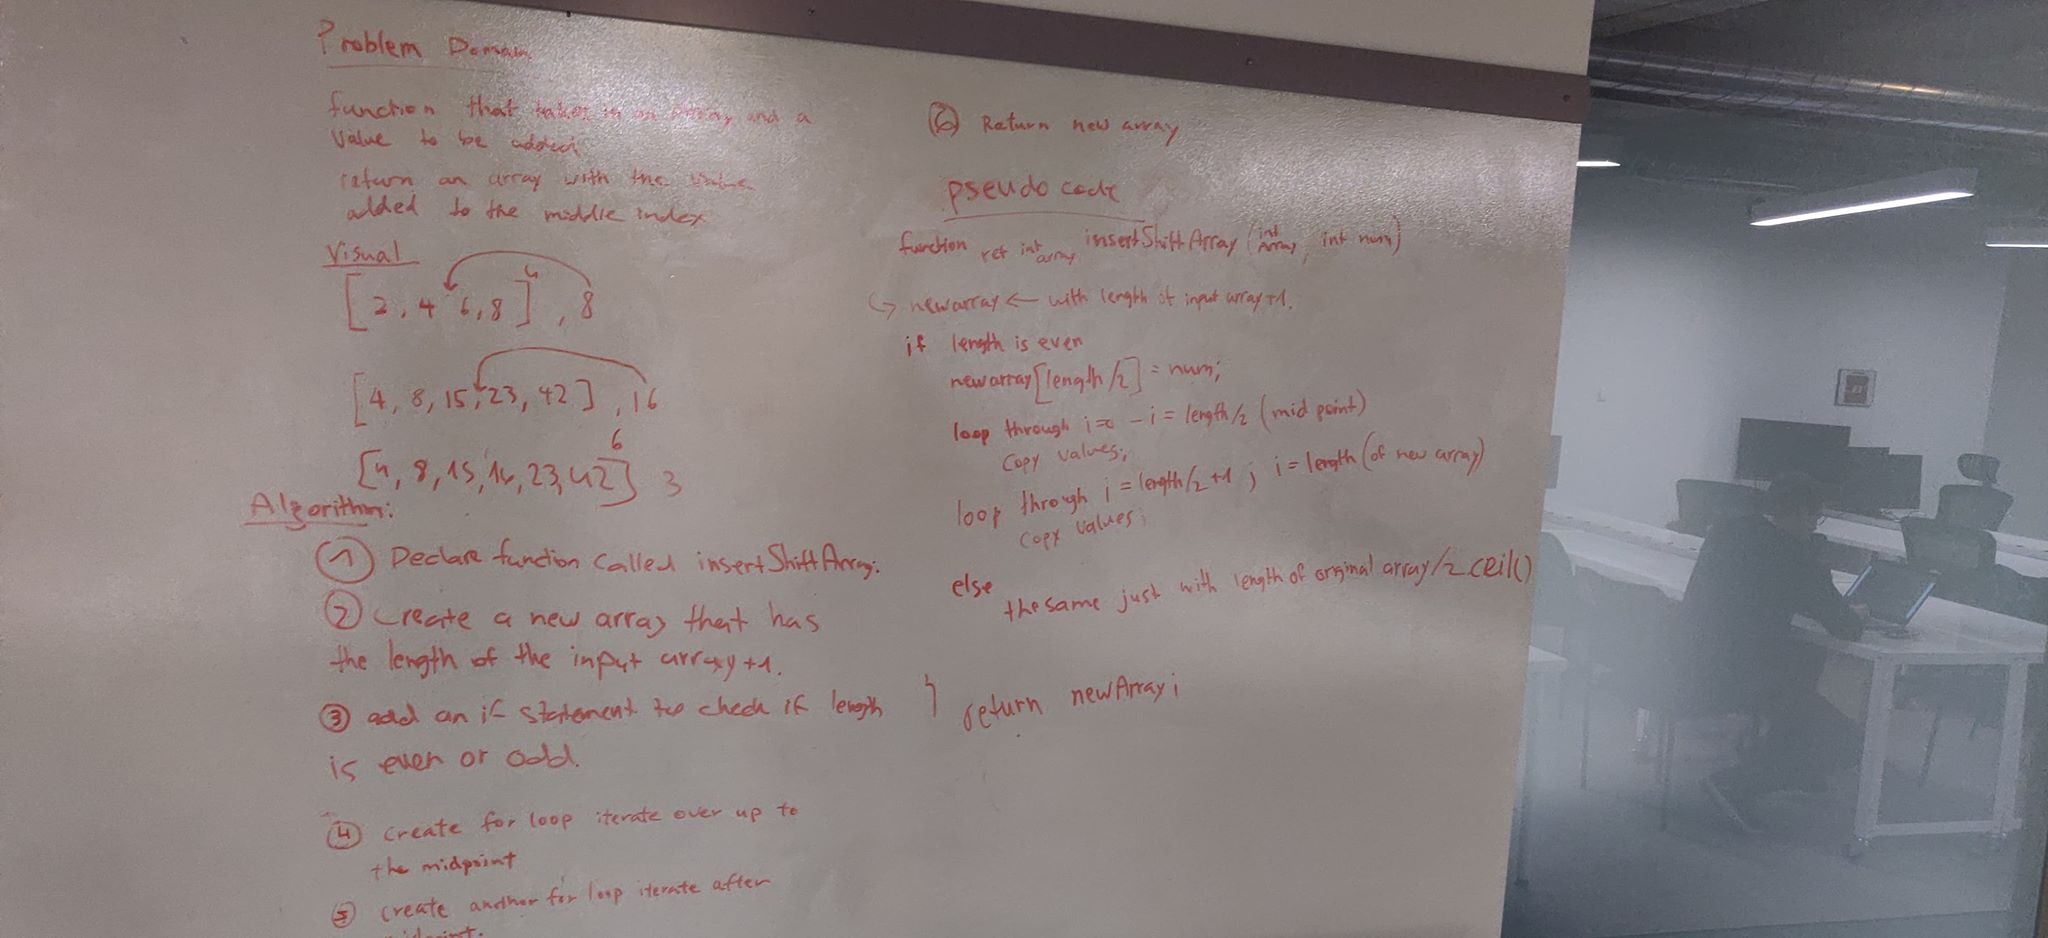 Problem Domain
function that takes in an Array and a
value to be added
return an array with the value
added to the middle index
Visual
4
[2, 4 6, 8], 8
[4, 8, 15, 23, 42], 16
6
[4, 8, 15, 16, 23, 42] 3
Algorithm:
① Declare function called insertShiftArray.
② create a new array that has
the length of the input array+1.
③ add an if statement to check if length
is even or odd.
④ create for loop iterate over up to
the midpoint
⑤ create another for loop iterate after
midpoint.
⑥ Return new array
pseudo code
function ret int array insertShiftArray (int Array, int num)
↪ newarray ← with length of input array+1.
if length is even
newarray[length/2] = num;
loop through i=0 - i = length/2 (mid point)
copy values;
loop through i = length/2+1 ; i = length (of new array)
copy values;
else
the same just with length of orginal array/2 ceil()
} return newArray;